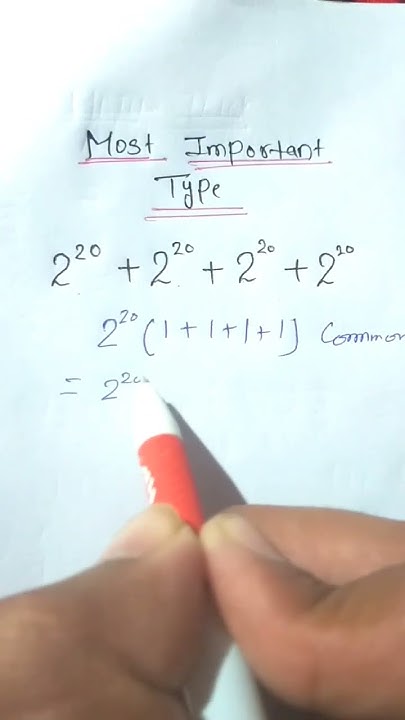 Most Important
Type
2²⁰ + 2²⁰ + 2²⁰ + 2²⁰
2²⁰ (1 + 1 + 1 + 1) Common
= 2²⁰